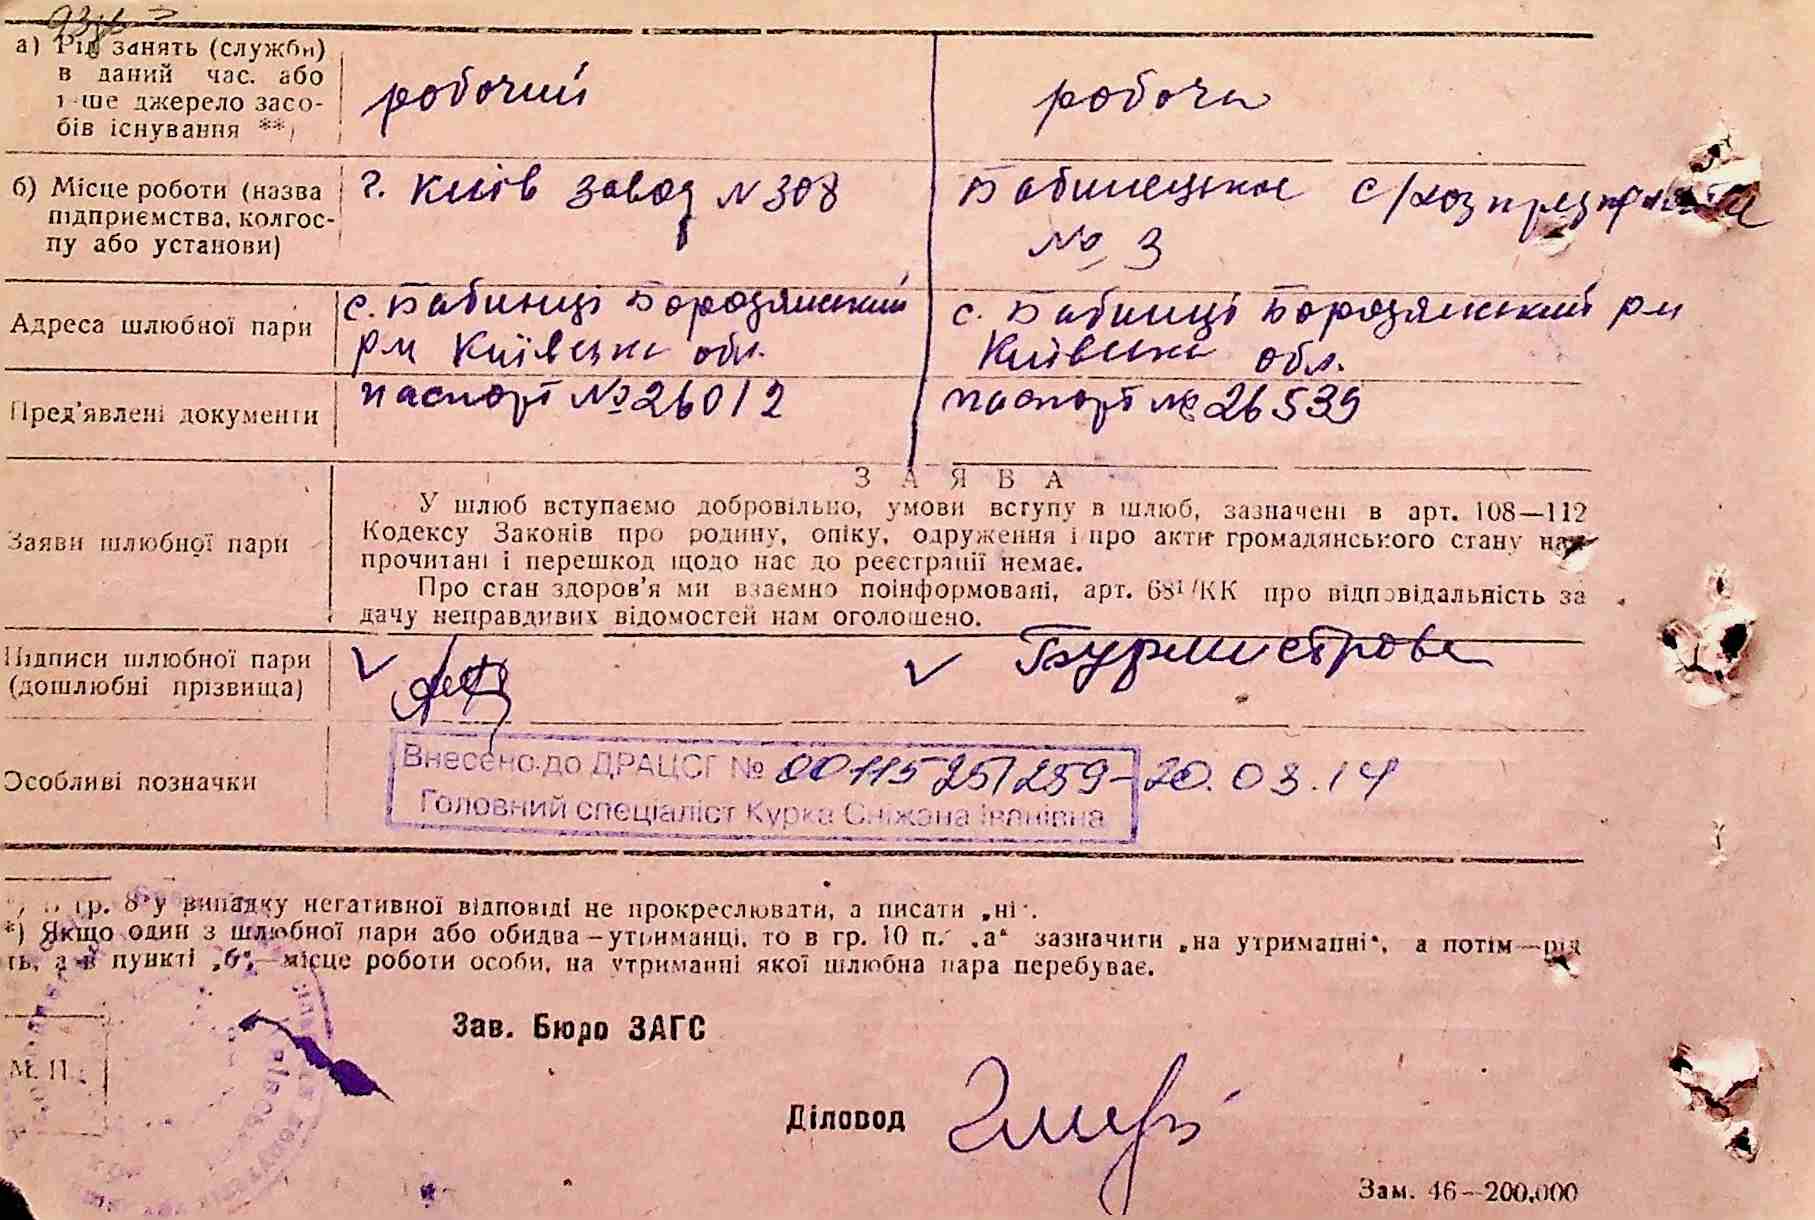 а) Рід занять (служби) в даний час. або інше джерело засобів існування **)
робочий
робоча
б) Місце роботи (назва підприємства, колгоспу або установи)
г. Київ завод № 308
Бабинецьке с/госппідприємство
№ 3
Адреса шлюбної пари
с. Бабинці Бородянський
р-н Київська обл.
с. Бабинці Бородянський р-н
Київська обл.
Пред'явлені документи
паспорт № 26012
паспорт № 26539
ЗАЯВА
Заяви шлюбної пари
У шлюб вступаємо добровільно, умови вступу в шлюб, зазначені в арт. 108—112
Кодексу Законів про родину, опіку, одруження і про акти громадянського стану нам
прочитані і перешкод щодо нас до реєстрації немає.
Про стан здоров'я ми взаємно поінформовані, арт. 68¹/КК про відповідальність за
дачу неправдивих відомостей нам оголошено.
Підписи шлюбної пари
(дошлюбні прізвища)
Бурмистрова
Особливі позначки
Внесено до ДРАЦСГ № 00115251259 - 20.03.14
Головний спеціаліст Курка Сніжана Іванівна
*) В гр. 8 у випадку негативної відповіді не прокреслювати, а писати „ні“.
*) Якщо один з шлюбної пари або обидва—утриманці, то в гр. 10 п. „а“ зазначити „на утриманні“, а потім—рід
ть, а в пункті „б“,—місце роботи особи, на утриманні якої шлюбна пара перебуває.
Зав. Бюро ЗАГС
М. П.
Діловод
Зам. 46—200.000